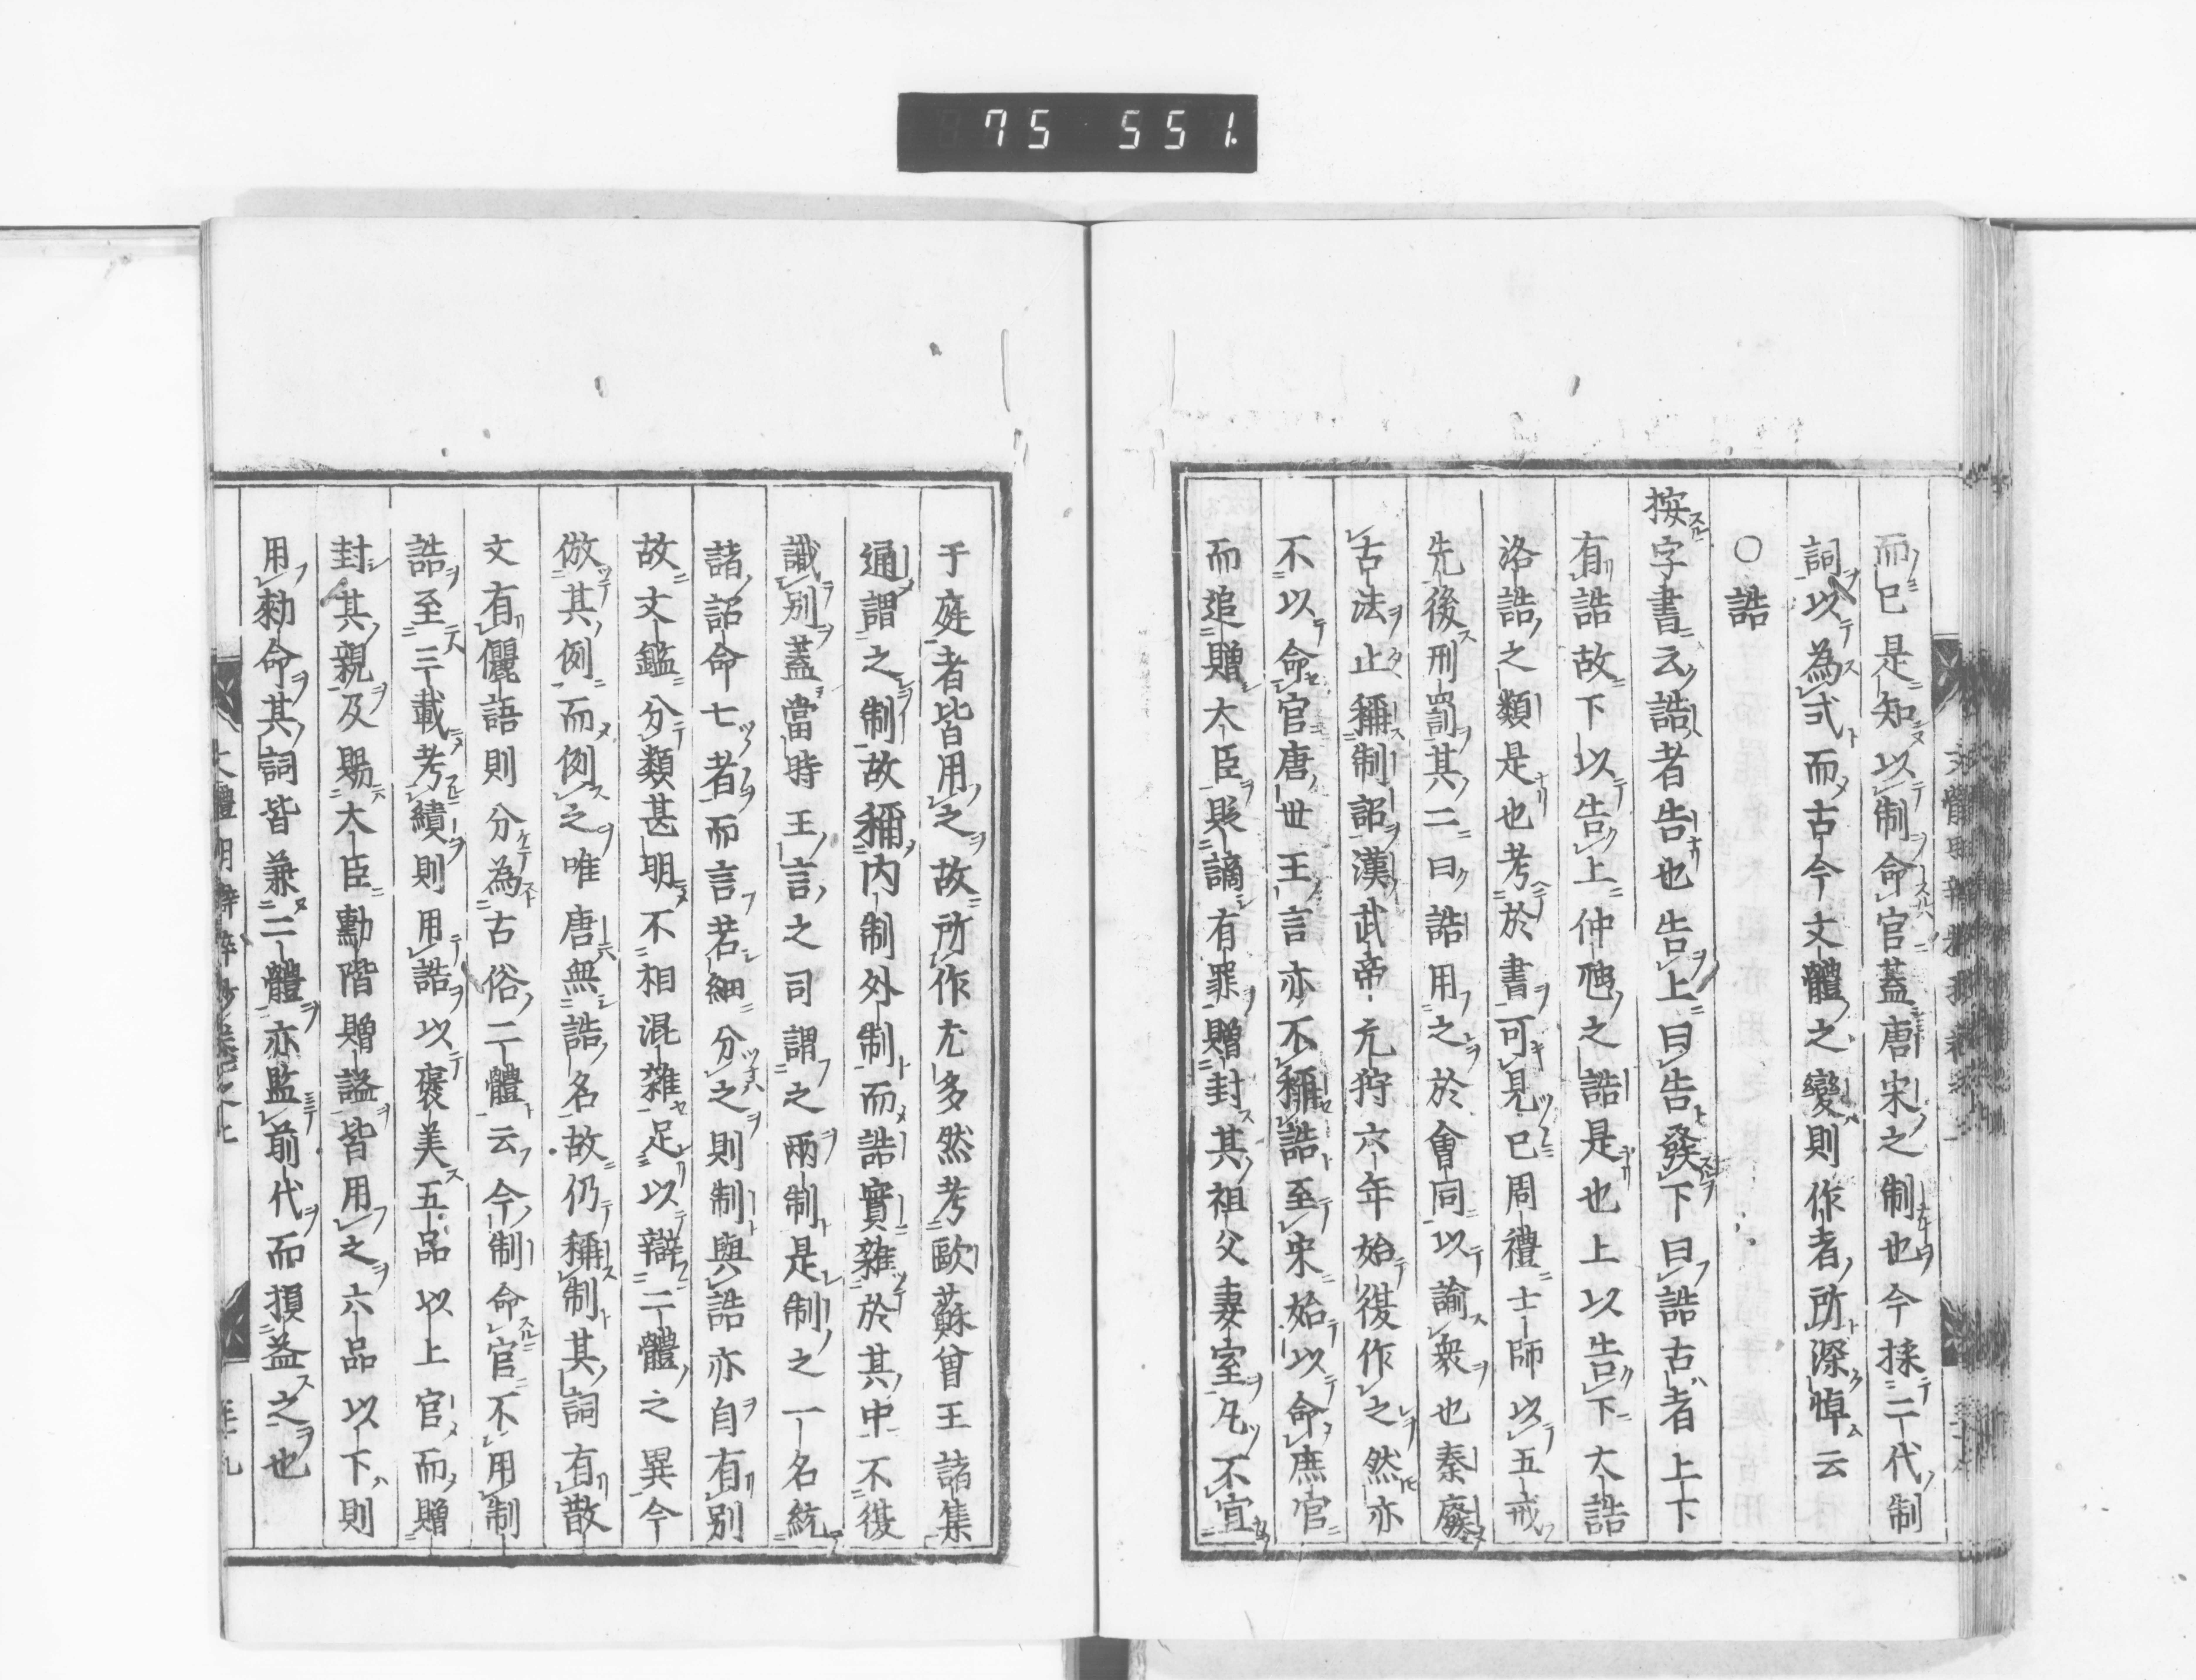 75 551.
而已是知以制命官蓋唐宋之制也今採二代制
詞以為式而古今文體之變則作者所深悼云
○誥
按字書云誥者告也告上曰告發下曰誥古者上下
有誥故下以告上仲虺之誥是也上以告下大誥
洛誥之類是也考於書可見已周禮士師以五戒
先後刑罰其二曰誥用之於會同以諭衆也秦廢
古法止稱制詔漢武帝元狩六年始復作之然亦
不以命官唐世王言亦不稱誥至宋始以命庶官
而追贈大臣貶謫有罪贈封其祖父妻室凡不宣
于庭者皆用之故所作尤多然考歐蘇曾王諸集
通謂之制故稱内制外制而誥實雜於其中不復
識別蓋當時王言之司謂之兩制是制之一名統
諸詔命七者而言若細分之則制與誥亦自有別
故文鑑分類甚明不相混雜足以辯二體之異今
倣其例而例之唯唐無誥名故仍稱制其詞有散
文有儷語則分為古俗二體云今制命官不用制
誥至三載考績則用誥以褒美五品以上官而贈
封其親及賜大臣勳階贈謚皆用之六品以下則
用勑命其詞皆兼二體亦監前代而損益之也